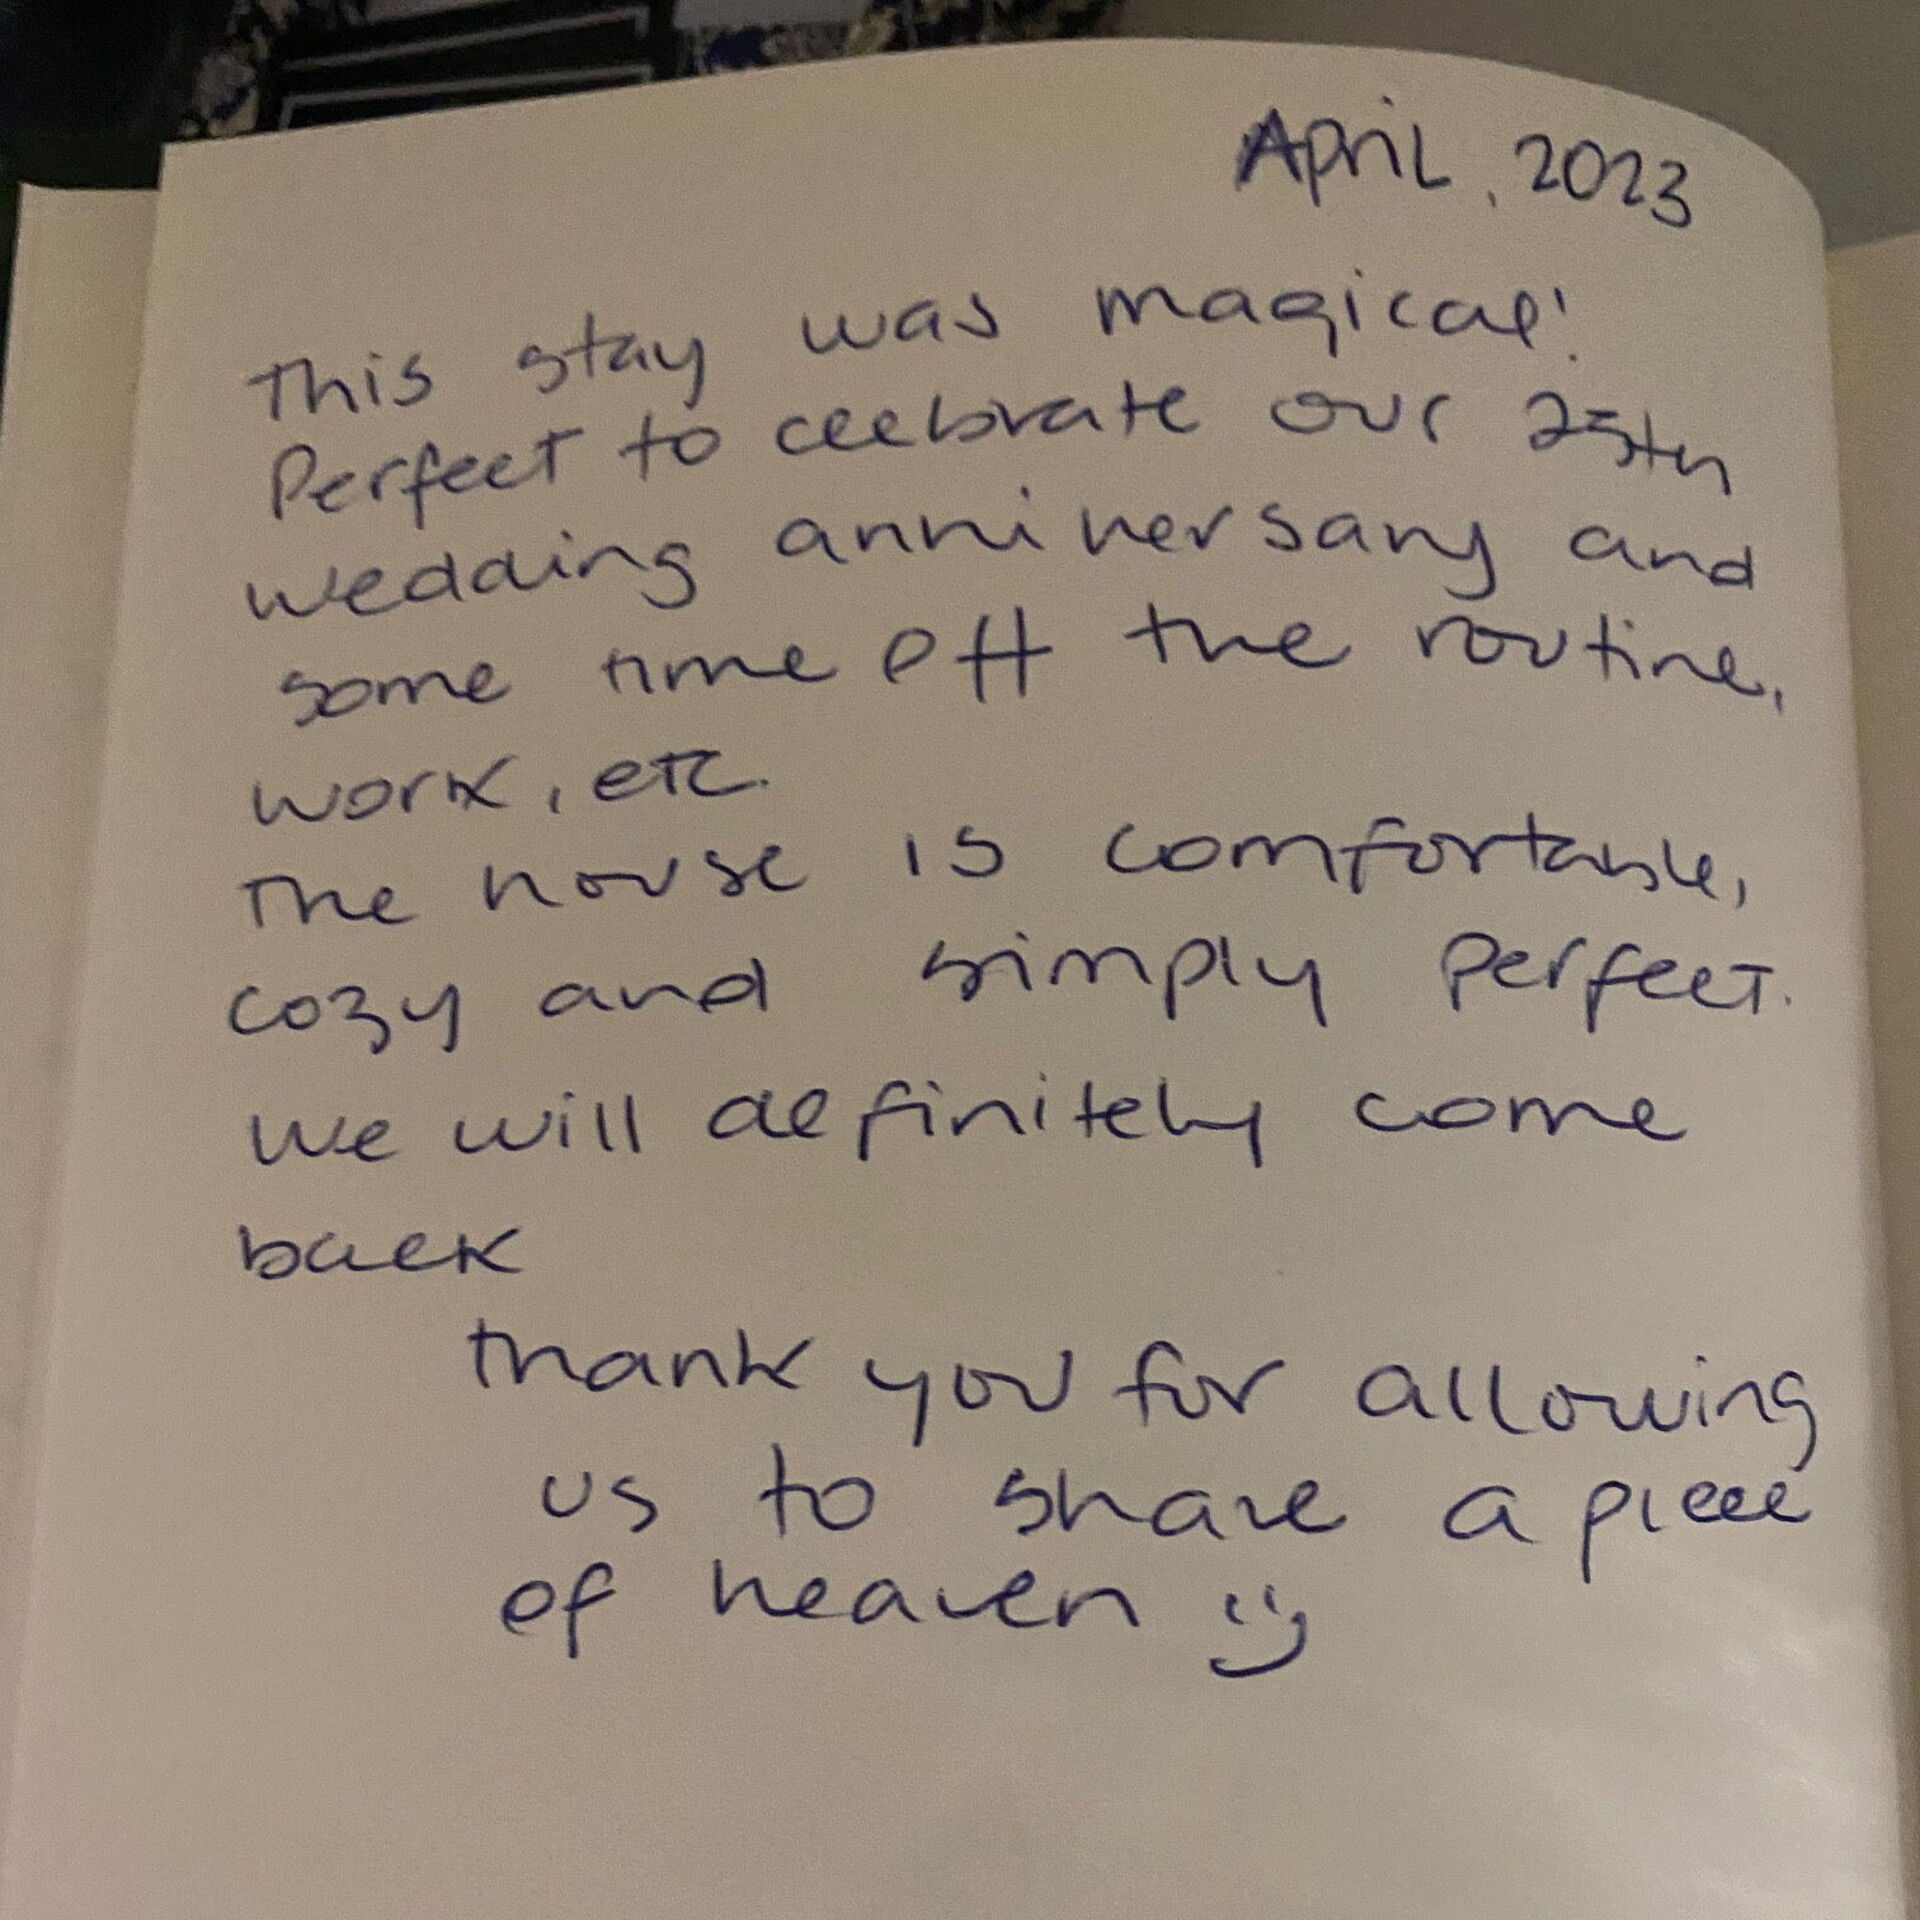 April, 2023
This stay was magical!
Perfect to celebrate our 25th
wedding anniversary and
some time off the routine,
work, etc.
The house is comfortable,
cozy and simply perfect.
We will definitely come
back
Thank you for allowing
us to share a piece
of heaven :)